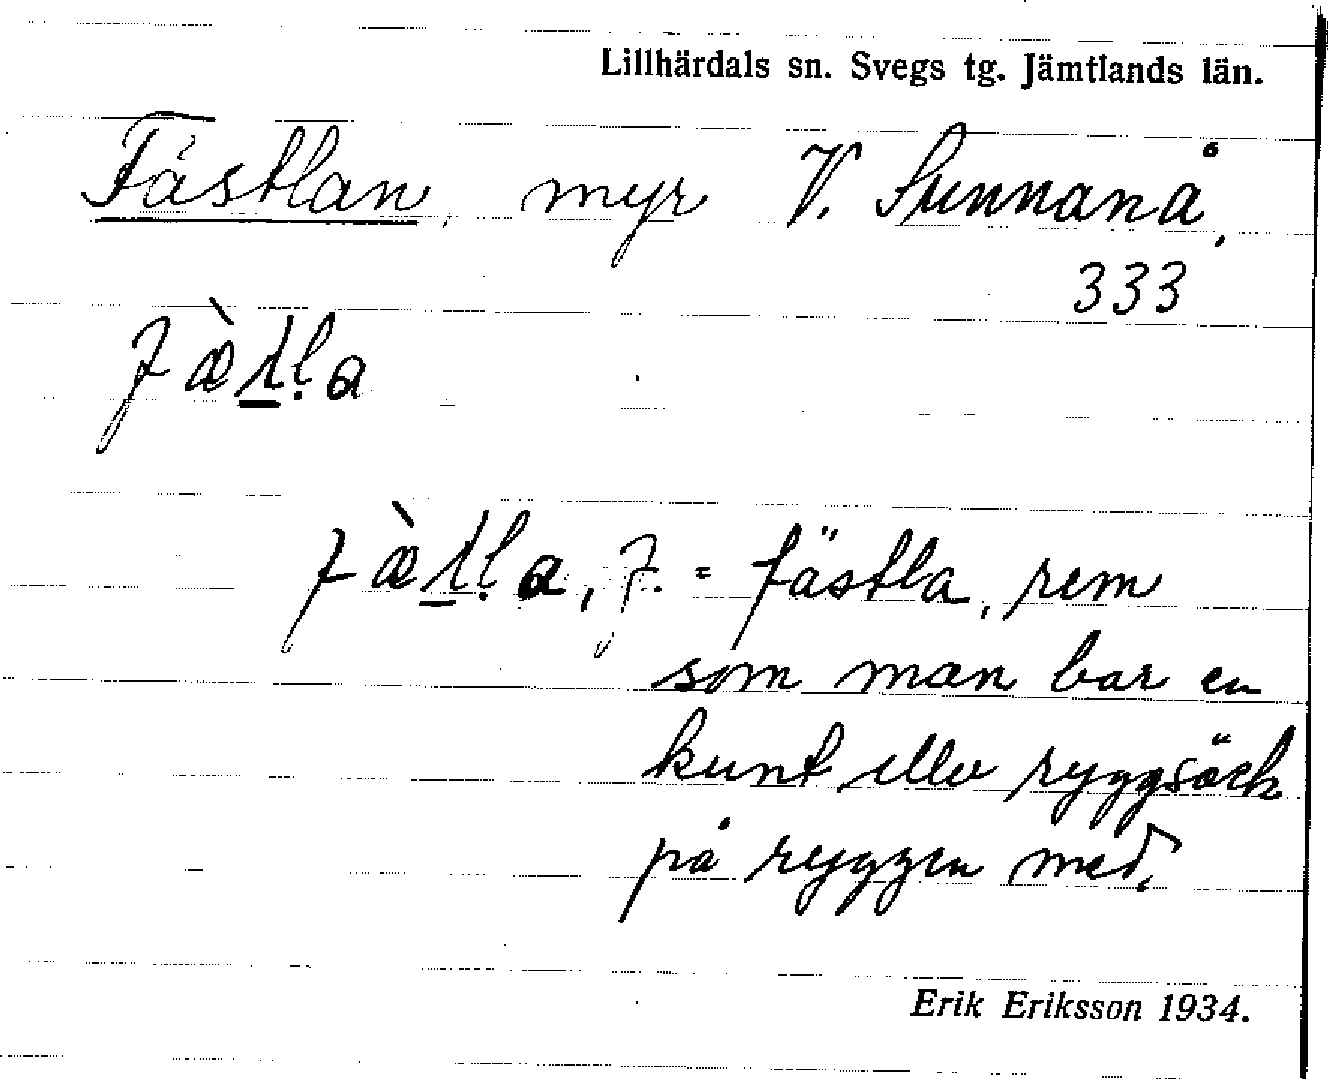 Lillhärdals sn. Svegs tg. Jämtlands län.
Fästlan, myr V. Sunnanå,
333
fæ̀ṯḷa
fæ̀ṯḷa, f. = fästla, rem
som man bar en
kunt eller ryggsäck
på ryggen med.
Erik Eriksson 1934.